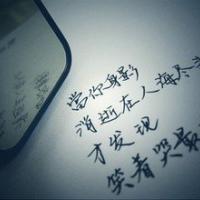 当你身影
消逝在人海尽
才发现
笑着哭最